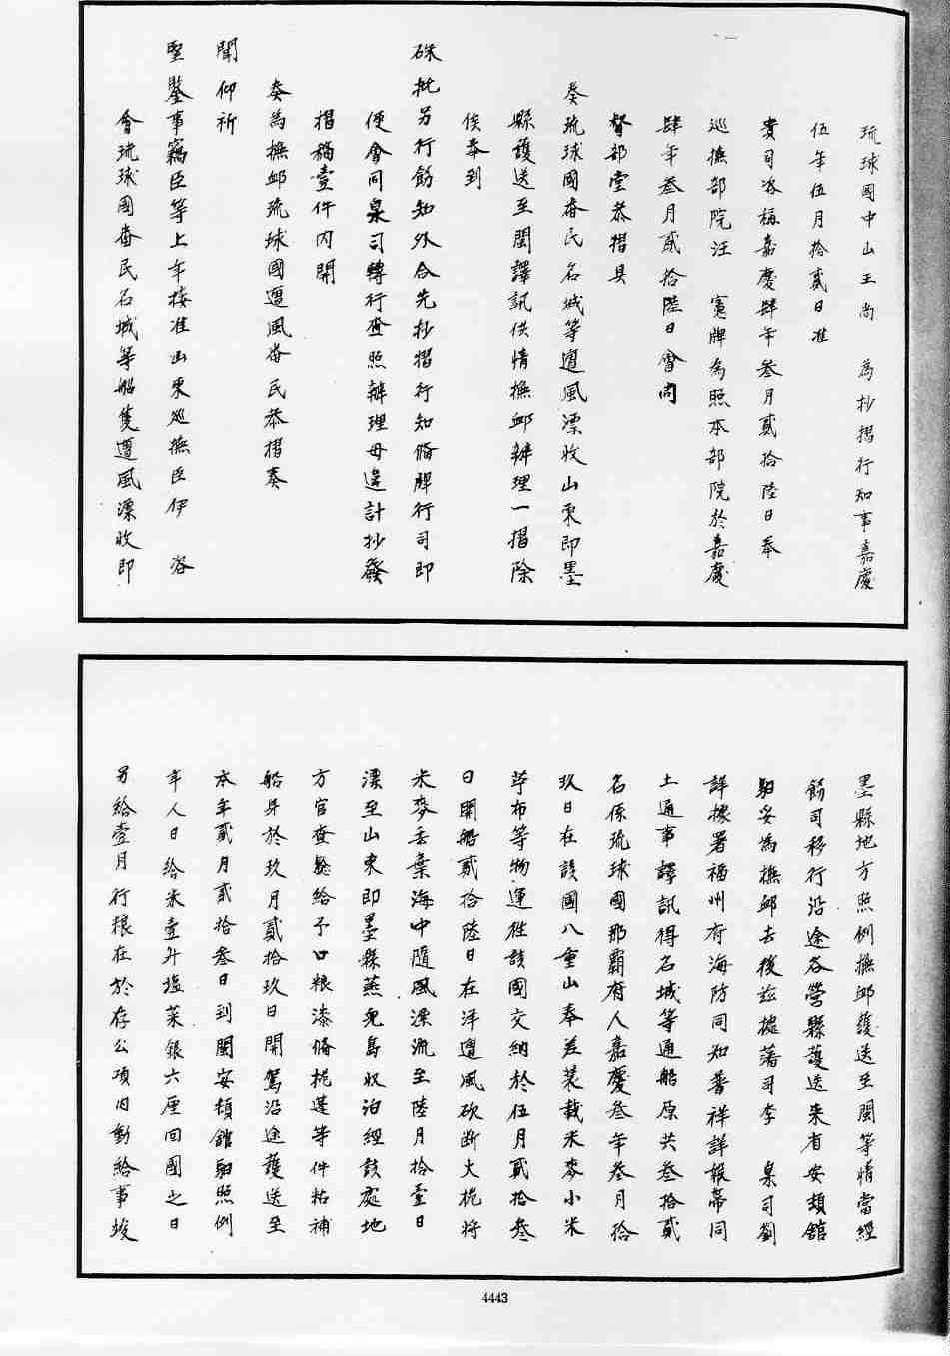 琉球國中山王尚　為抄摺行知事嘉慶
伍年伍月拾貳日准
貴司咨稱嘉慶肆年叁月貳拾陸日奉
巡撫部院汪　憲牌為照本部院於嘉慶
肆年叁月貳拾陸日會同
督部堂恭摺具
奏琉球國畨民名城等遭風漂收山東即墨
縣護送至閩譯訊供情撫卹辦理一摺除
俟奉到
硃批另行飭知外合先抄摺行知備牌行司即
便會同臬司轉行查照辦理毋違計抄發
摺稿壹件內開
奏為撫卹琉球國遭風畨民恭摺奏
聞仰祈
聖鑒事竊臣等上年接准山東巡撫臣伊　咨
會琉球國畨民名城等船隻遭風漂收即
墨縣地方照例撫卹護送至閩等情當經
飭司移行沿途各營縣護送來省安頓館
驛妥為撫卹去後茲據藩司李　臬司劉
詳據署福州府海防同知普祥詳報帶同
土通事譯訊得名城等通船原共叁拾貳
名係琉球國那霸府人嘉慶叁年叁月拾
玖日在該國八重山奉差裝載米麥小米
苧布等物運往該國交納於伍月貳拾叁
日開船貳拾陸日在洋遭風砍斷大桅將
米麥丟棄海中隨風漂流至陸月拾壹日
漂至山東即墨縣燕兒島收泊經該處地
方官查驗給予口粮漆備桅蓬等件粘補
船身於玖月貳拾玖日開駕沿途護送至
本年貳月貳拾叁日到閩安頓館驛照例
年人日給米壹升塩菜銀六厘回國之日
另給壹月行粮在於存公項內動給事竣
4443